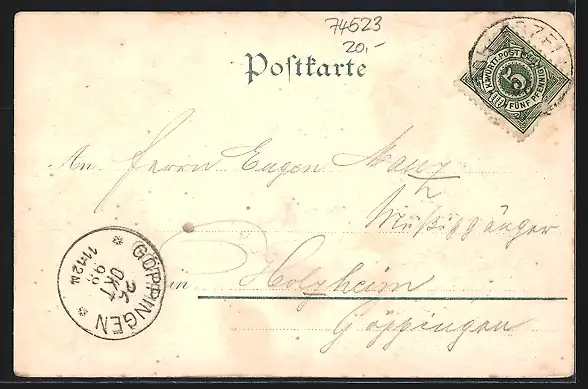 74523
20,-
Postkarte
K.WÜRTT.POST
FÜNF PFENNIG
5
An Herrn Eugen Mauz
Müßiggänger
in Holzheim
Göppingen
GÖPPINGEN
26
OKT
98